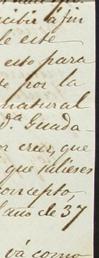 recibir á fin
de este
esto para
por la
natural
d.ª Guada-
creer, que
que saliéres
concepto,
l año de 37
vá como